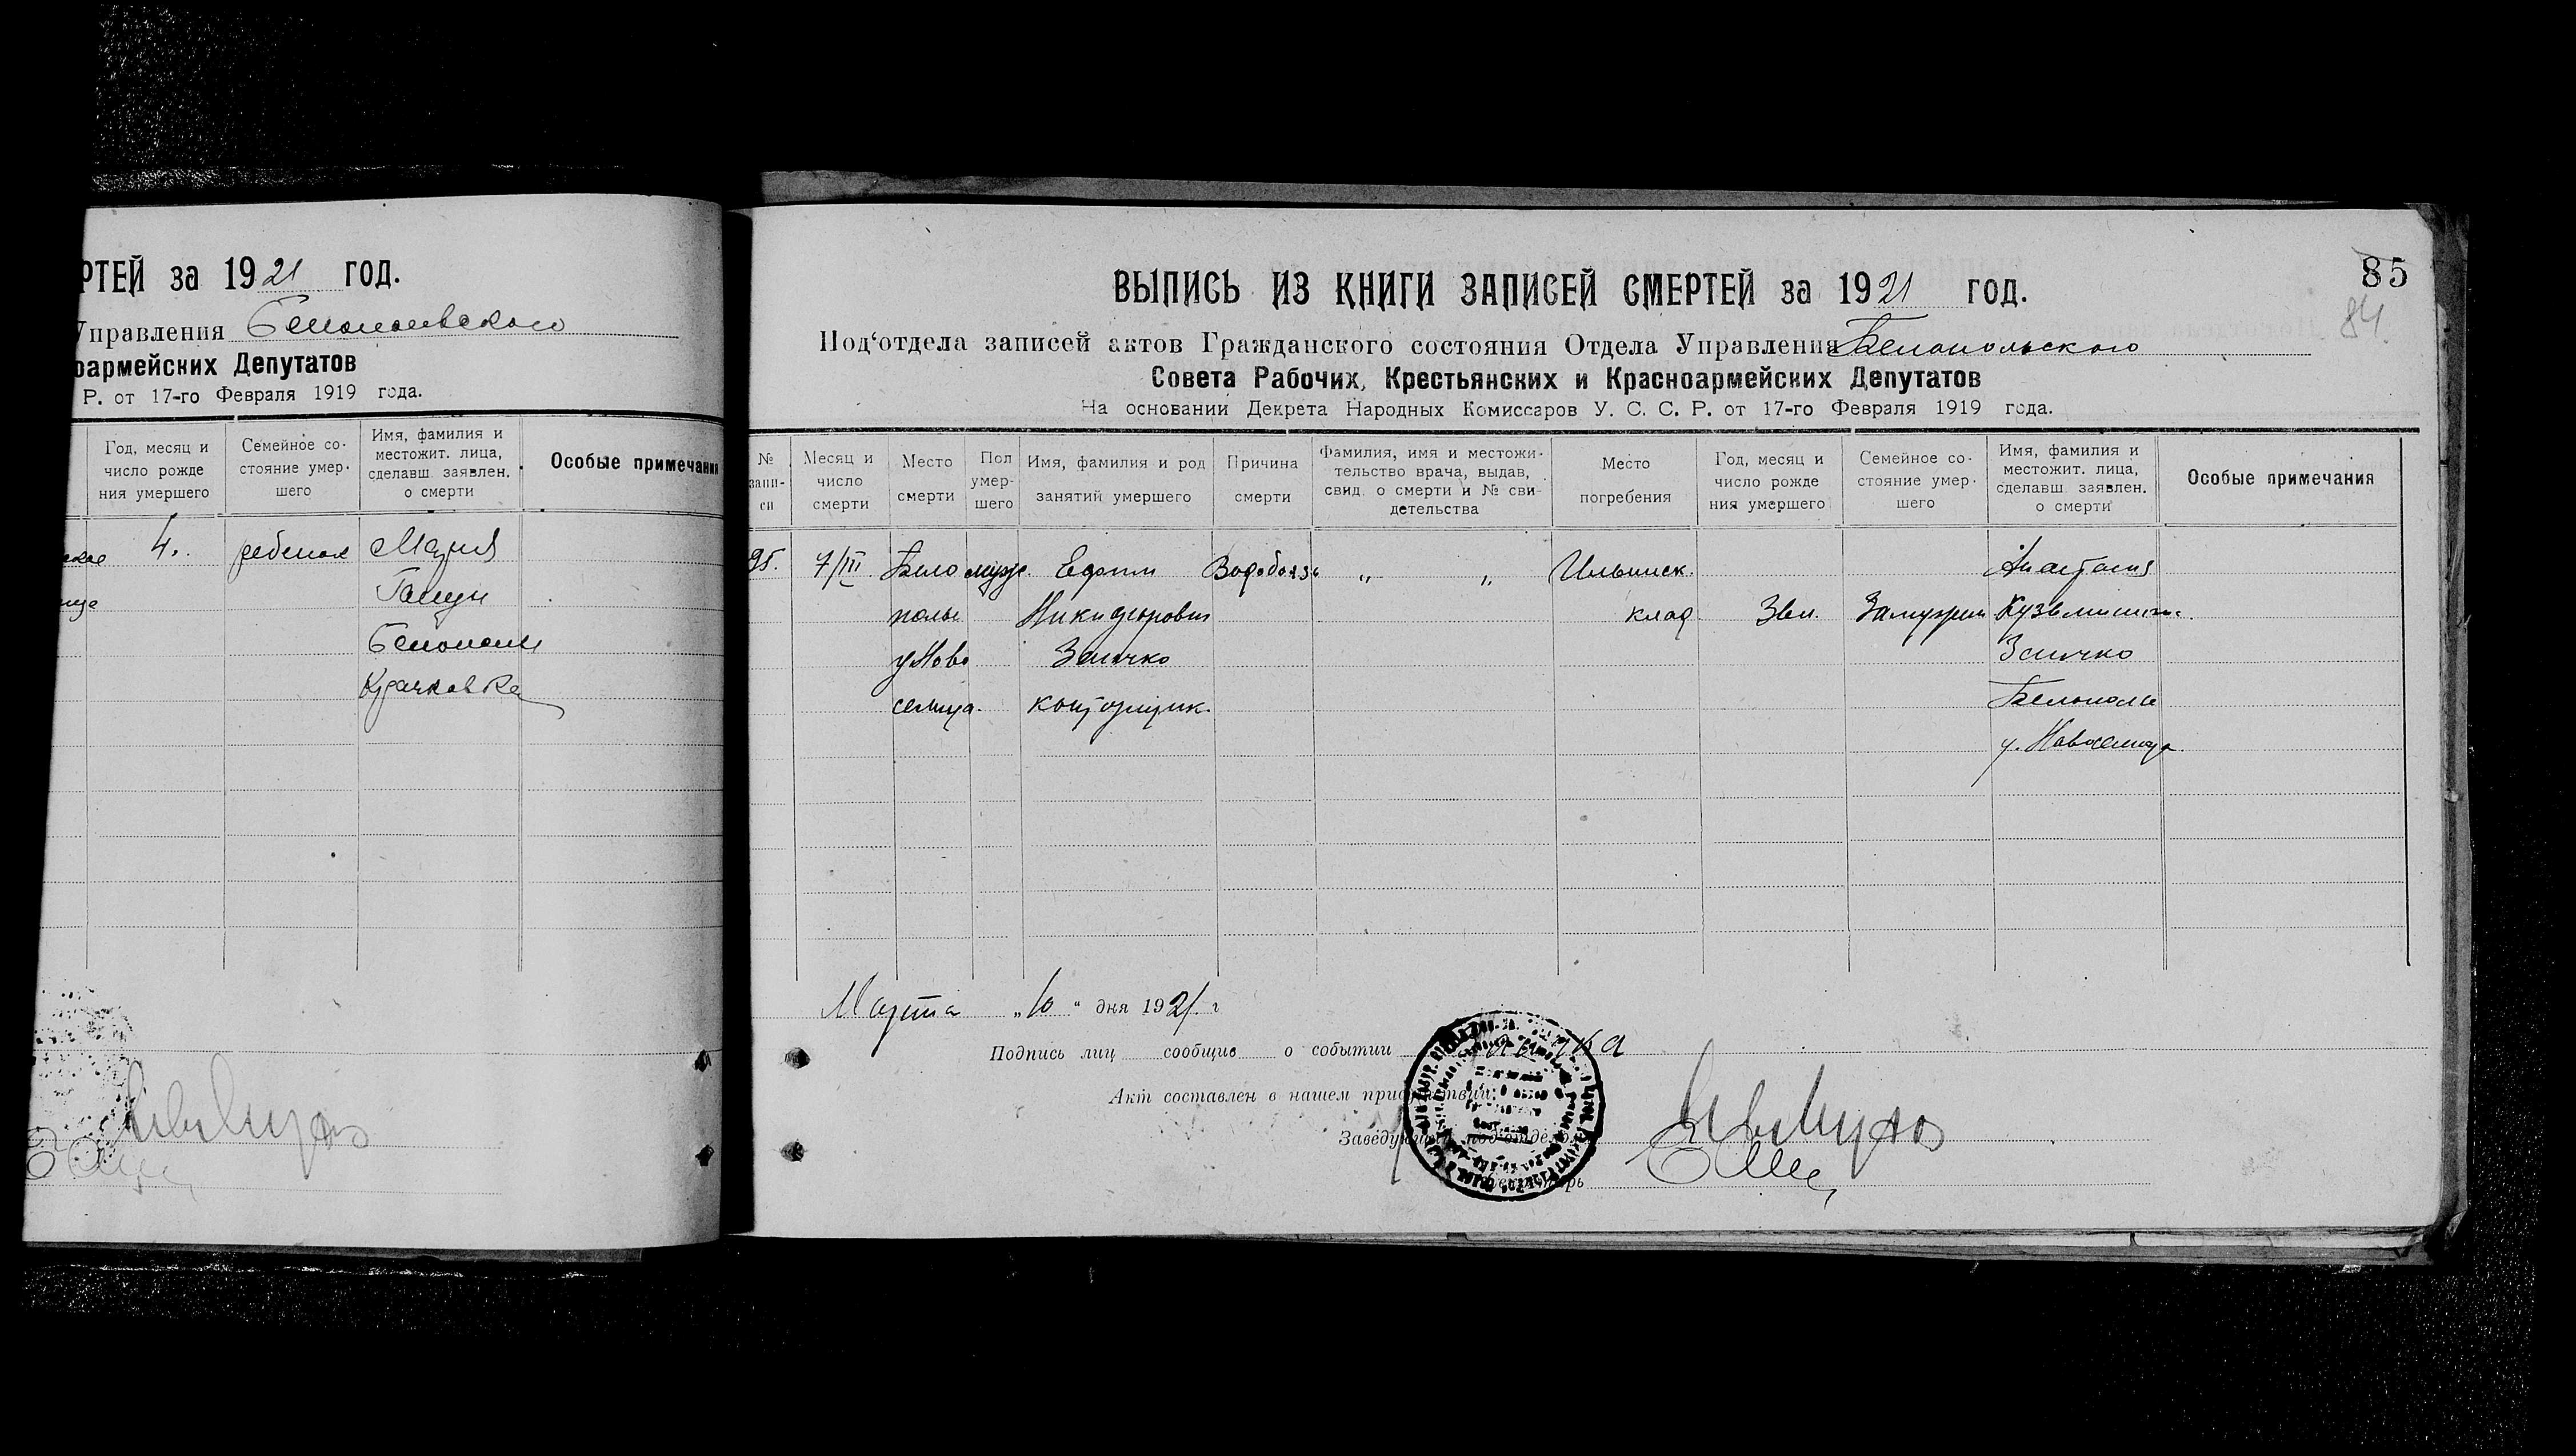 РТЕЙ за 1921 год.
Управления Белопольского
оармейских Депутатов
Р. от 17-го Февраля 1919 года.
Год, месяц и число рожде ния умершего
Семейное со- стояние умер- шего
Имя, фамилия и местожит. лица, сделавш. заявлен. о смерти
Особые примечания
4. ребенок Мария
Белополье
Крачковка
85
84
ВЫПИСЬ ИЗ КНИГИ ЗАПИСЕЙ СМЕРТЕЙ за 1921 год.
Под‘отдела записей актов Гражданского состояния Отдела Управления Белопольского
Совета Рабочих, Крестьянских и Красноармейских Депутатов
На основании Декрета Народных Комиссаров У. С. С. Р. от 17-го Февраля 1919 года.
№ запи- си
Месяц и число смерти
Место смерти
Пол умер- шего
Имя, фамилия и род занятий умершего
Причина смерти
Фамилия, имя и местожи- тельство врача, выдав, свид. о смерти и № сви- детельства
Место погребения
Год, месяц и число рожде ния умершего
Семейное со- стояние умер- шего
Имя, фамилия и местожит. лица, сделавш. заявлен. о смерти
Особые примечания
95. 7/III Бело муж. Ефим Водобоязь „ „ Ильинск. Анастасия
полье клад.
у Ново Заичко Заичко
селица. конторщик. Белополье
у. Новоселица
Марта „10“ дня 1921 г
Подпись лиц сообщив о событии
Акт составлен в нашем присутствии:
Заведующий под‘отделом